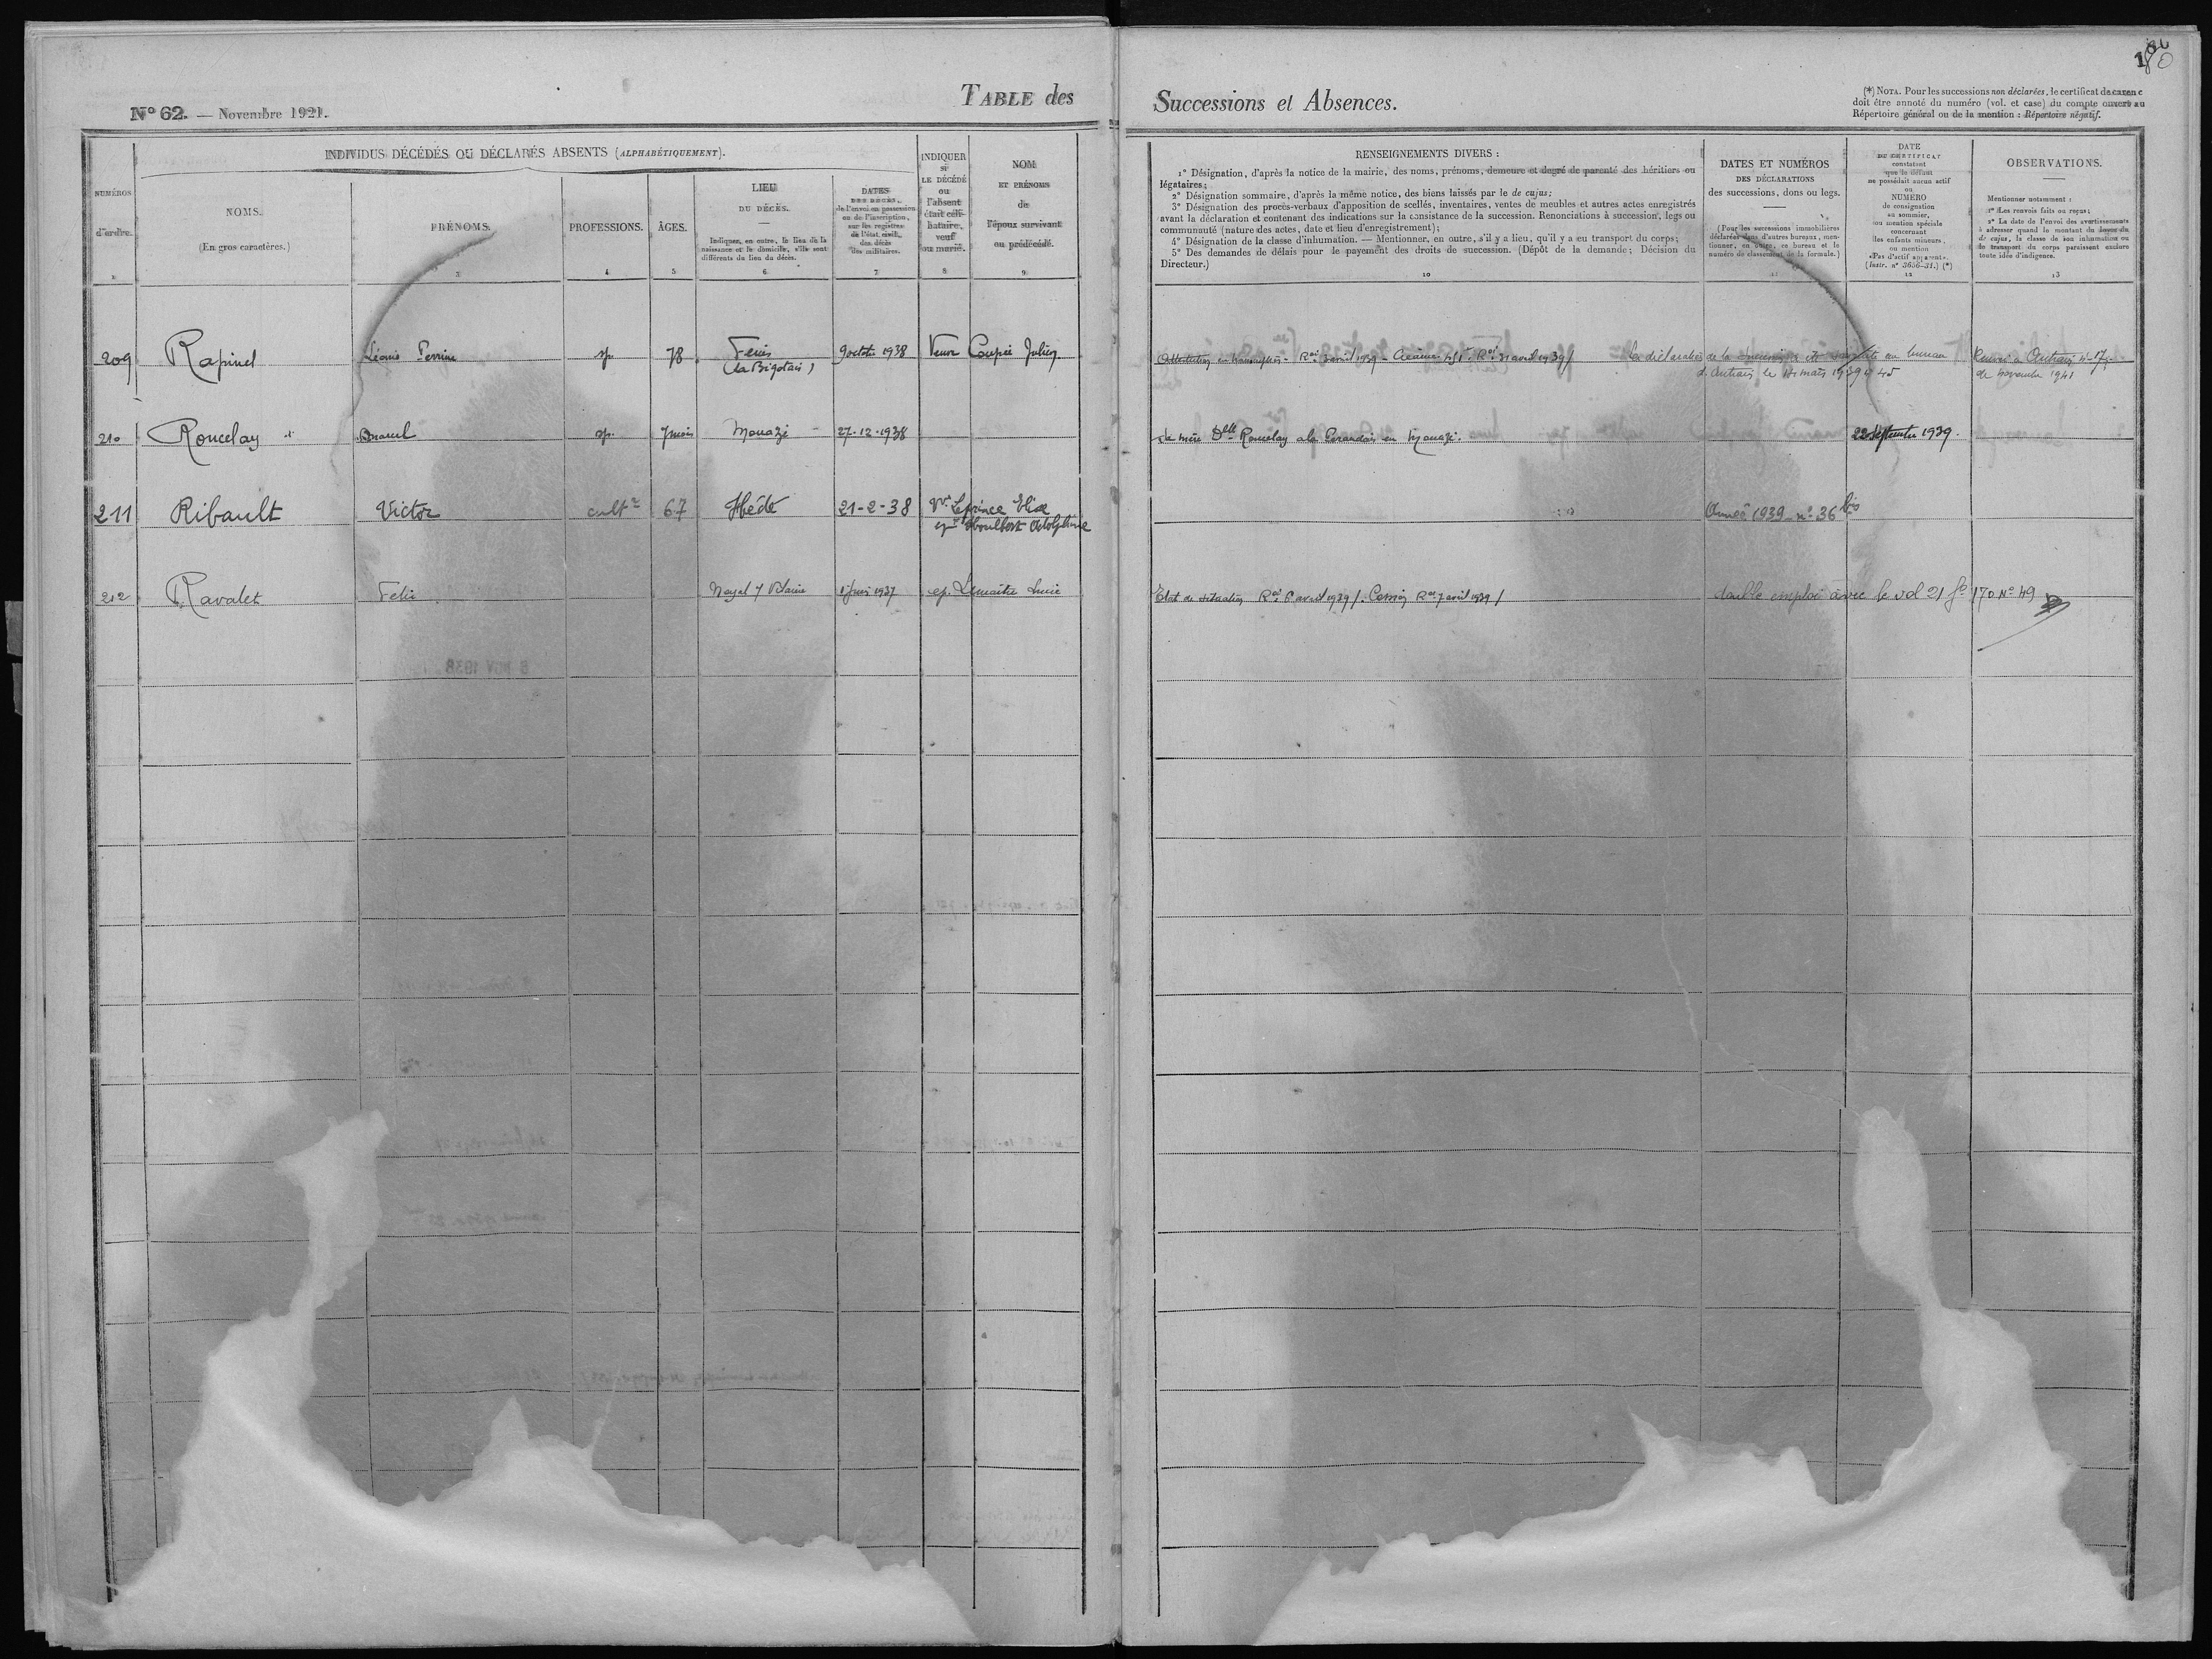 180
N° 62. — Novembre 1921.
TABLE des
Successions et Absences.
(*) NOTA. Pour les successions non déclarées, le certificat de carence
doit être annoté du numéro (vol. et case) du compte ouvert au
Répertoire général ou de la mention : Répertoire négatif.
NUMÉROS
d'ordre.
INDIVIDUS DÉCÉDÉS OU DÉCLARÉS ABSENTS (ALPHABÉTIQUEMENT).
NOMS.
(En gros caractères.)
PRÉNOMS.
3
PROFESSIONS.
4
ÂGES.
5
LIEU
DU DÉCÈS.
Indiquer, en outre, le lieu de la
naissance et le domicile, s'ils sont
différents du lieu du décès.
6
DATES
DES DÉCÈS,
de l'envoi en possession
ou de l'inscription,
sur les registres
de l'état civil,
des décès
des militaires.
7
INDIQUER
si
LE DÉCÉDÉ
ou
l'absent
était céli-
bataire,
veuf
ou marié.
8
NOM
ET PRÉNOMS
de
l'époux survivant
ou prédécédé.
9
RENSEIGNEMENTS DIVERS :
1° Désignation, d'après la notice de la mairie, des noms, prénoms, demeure et degré de parenté des héritiers ou
légataires;
2° Désignation sommaire, d'après la même notice, des biens laissés par le de cujus;
3° Désignation des procès-verbaux d'apposition de scellés, inventaires, ventes de meubles et autres actes enregistrés
avant la déclaration et contenant des indications sur la consistance de la succession. Renonciations à succession, legs ou
communauté (nature des actes, date et lieu d'enregistrement);
4° Désignation de la classe d'inhumation. — Mentionner, en outre, s'il y a lieu, qu'il y a eu transport du corps;
5° Des demandes de délais pour le payement des droits de succession. (Dépôt de la demande; Décision du
Directeur.)
10
DATES ET NUMÉROS
DES DÉCLARATIONS
des successions, dons ou legs.
(Pour les successions immobilières
déclarées dans d'autres bureaux, men-
tionner, en outre, ce bureau et le
numéro de classement de la formule.)
11
DATE
DU CERTIFICAT
constatant
que le défunt
ne possédait aucun actif
ou
NUMÉRO
de consignation
au sommier,
ou mention spéciale
concernant
les enfants mineurs,
ou mention
«Pas d'actif apparent».
(Instr. n° 3656-31.) (*)
12
OBSERVATIONS.
Mentionner notamment :
1° Les renvois faits ou reçus;
2° La date de l'envoi des avertissements
à adresser quand le montant du loyer du
de cujus, la classe de son inhumation ou
le transport du corps paraissent exclure
toute idée d'indigence.
13
209 Rapinel Léonie Perrine sp 78 Feins 9 octobre 1938 Veuve Coupée Julien
(la Bigotais)
avril 1939 avril 1939 / La déclaration de la succession au bureau Renvoi à Antrain n° 17
d'Antrain le 14 mars 1939 n° 45 de novembre 1941
210 Roncelay Marcel sp. 7 mois Mouazé 27-12-1938
Sa mère Delle Roncelay en Mouazé. 22 septembre 1939.
211 Ribault Victor cultr 67 Hédé 21-2-38 Vf Leprince Elise
ep Houlbert Adolphine
Année 1939 n° 36 bis
212 Ravalet Noyal s/ Vilaine 1937 ep. Lemaitre Lucie
Etat de situation Ren 6 avril 1939 /. Cession Ren 7 avril 1939 / double emploi avec le vol 21 f° 170 N° 49